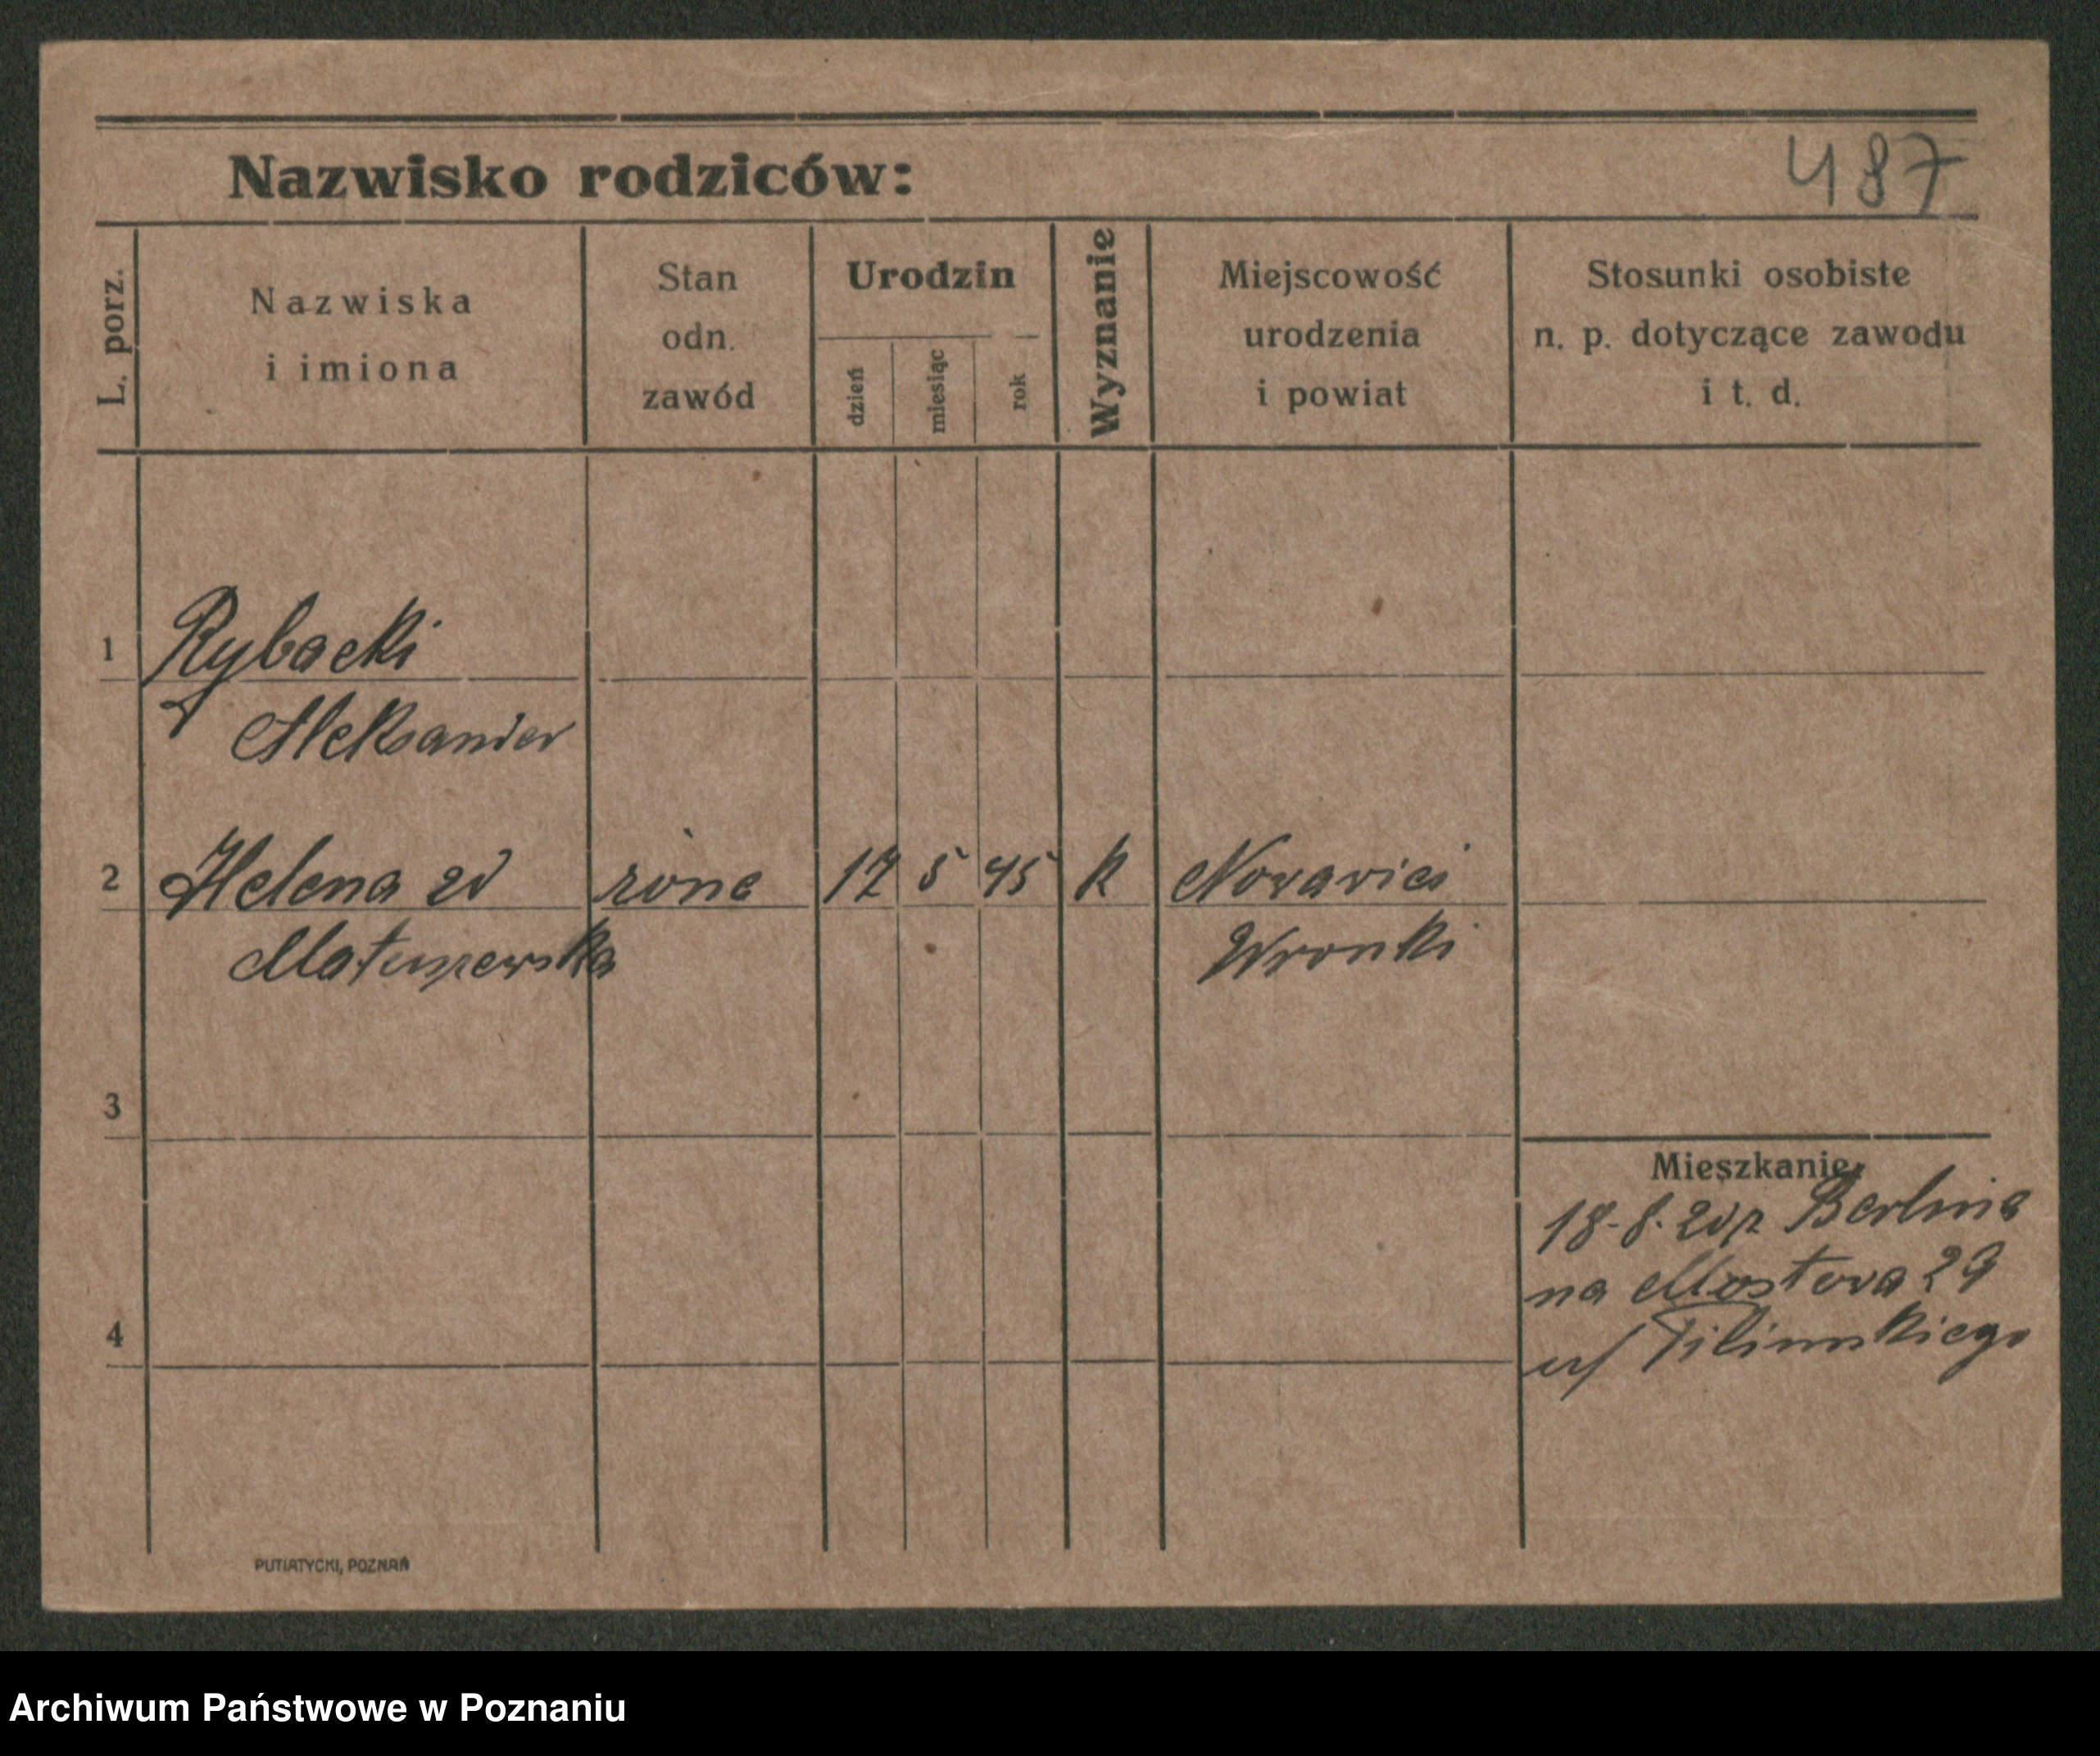 Nazwisko rodziców:
487
L. porz.
Nazwiska
i imiona
Stan
odn.
zawód
Urodzin
dzień
miesiąc
rok
Wyznanie
Miejscowość
urodzenia
i powiat
Stosunki osobiste
n. p. dotyczące zawodu
i t. d.
1 Rybacki
Aleksander
2 Helena zd żona 17 5 45 k
Matuszewska Wronki
3
Mieszkanie
18-8-20 z Berlina
na Mostowa 29
4
PUTIATYCKI, POZNAŃ
Archiwum Państwowe w Poznaniu